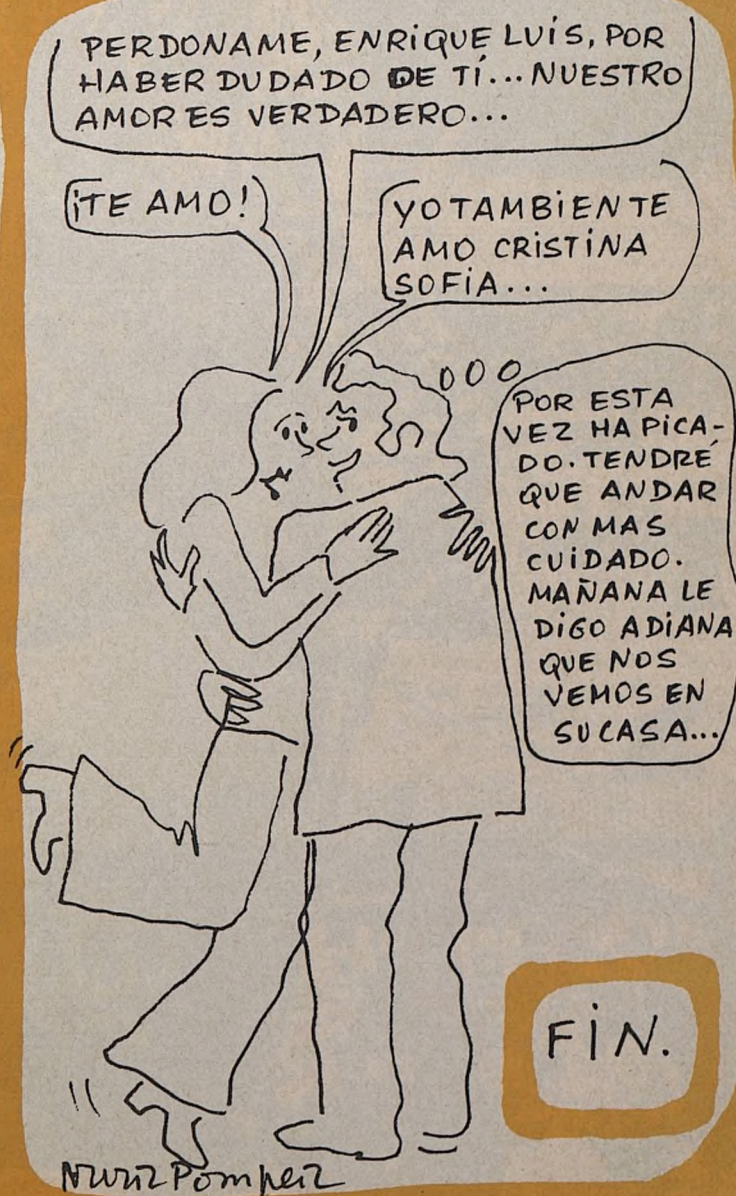 PERDONAME, ENRIQUE LUÍS, POR
HABER DUDADO DE TÍ... NUESTRO
AMOR ES VERDADERO...
¡TE AMO!
YO TAMBIEN TE
AMO CRISTINA
SOFIA...
POR ESTA
VEZ HA PICA-
DO. TENDRÉ
QUE ANDAR
CON MAS
CUIDADO.
MAÑANA LE
DIGO A DIANA
QUE NOS
VEMOS EN
SU CASA...
FIN.
Nuria Pompeia